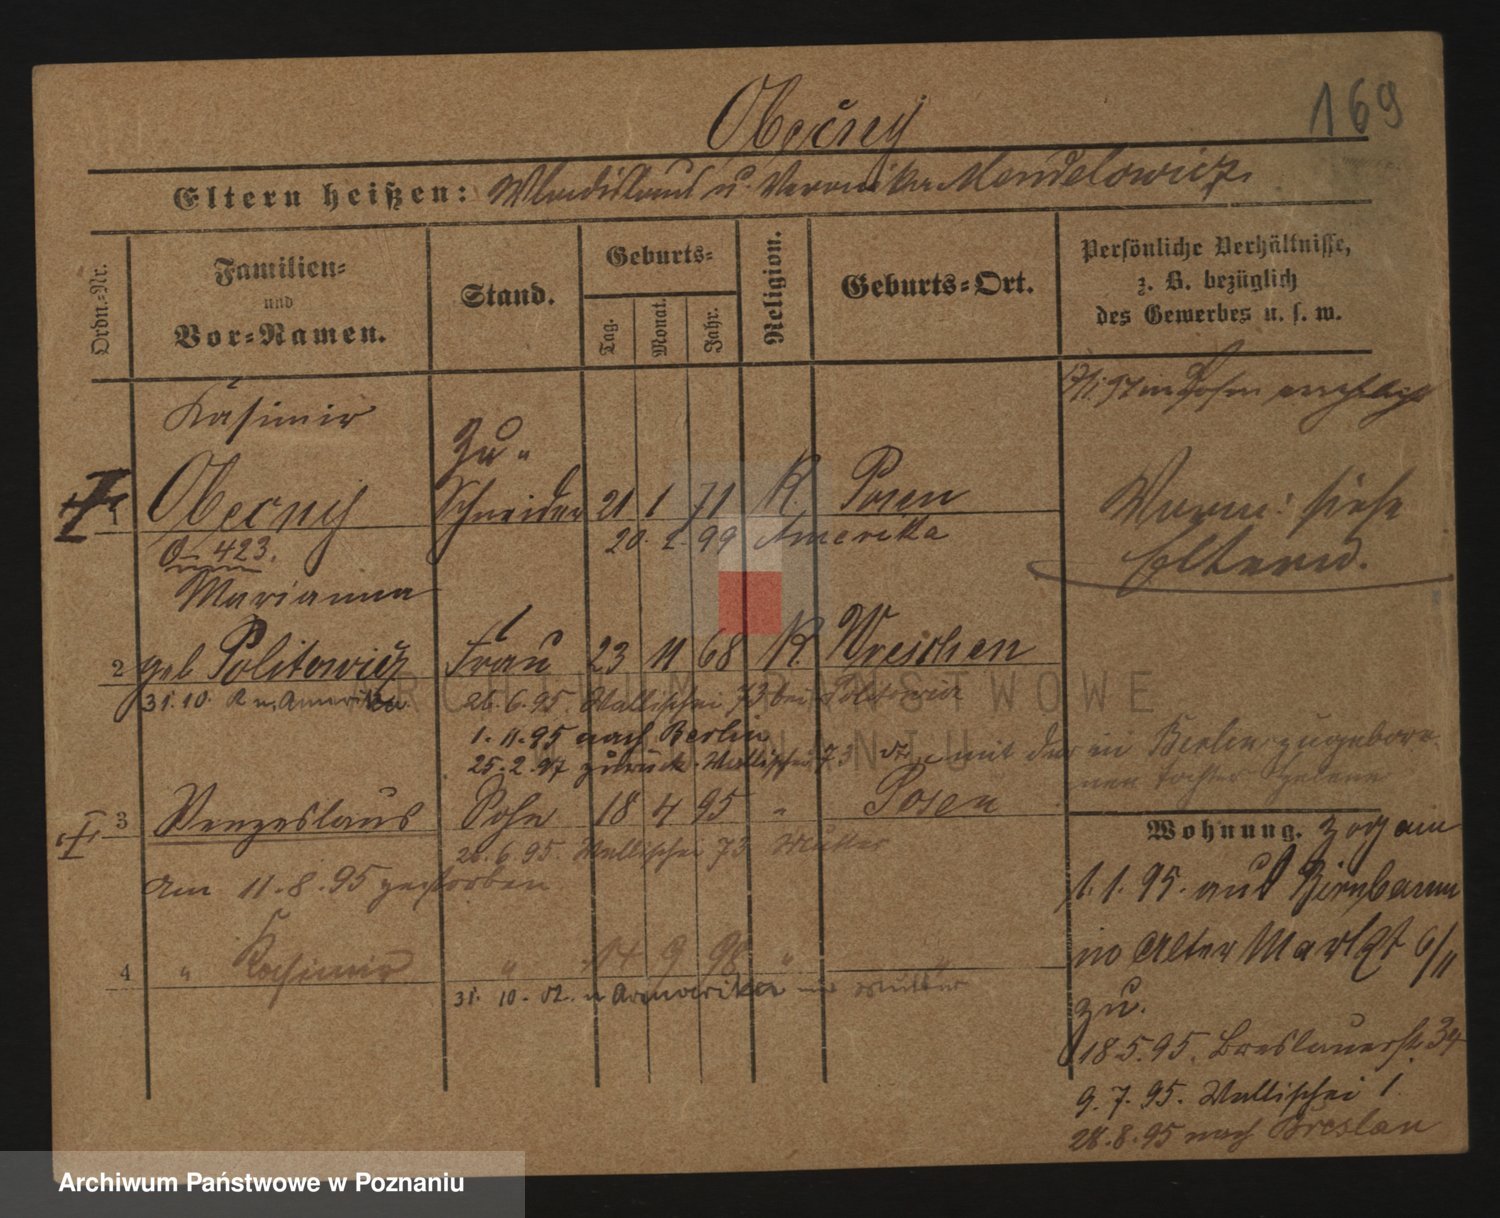 169
Obecny
Eltern heißen: Wladislaus u. Veronika Mendelowicz.
Ordn.-Nr.
Familien-
und
Vor-Namen.
Stand.
Geburts-
Tag.
Monat.
Jahr.
Religion.
Geburts-Ort.
Persönliche Verhältnisse,
z. B. bezüglich
des Gewerbes u. s. w.
in Posen
Kasimir
Zu
1 Obecny Schneider 21 1 71 K. Posen
siehe
Eltern.
423. 20. 2. 99 Amerika
Marianna
2 geb Politowicz Frau 23 11 68 K. Wreschen
31. 10. n. Amerika 26. 6. 95. Wallischei 73 bei Politowicz
1. 11. 95 nach Berlin
25. 2. 97 zurück. Wallischei 73 mit der in Berlin zugebore-
nen Tochter Helene
3 Wenzeslaus Sohn 18 4 95 " Posen
26. 6. 95. Wallischei 73 Mutter
am 11. 8. 95 gestorben
4 " Kasimir " 14 9 98 " "
31. 10. 02. n Amerika mit Mutter
Wohnung. zog am
1. 1. 95. aus Birnbaum
no Alter Markt 6/11
zu.
18. 5. 95. Breslauerstr. 34
9. 7. 95. Wallischei 1.
28. 8. 95 nach Breslau
ARCHIWUM PAŃSTWOWE
W POZNANIU
Archiwum Państwowe w Poznaniu